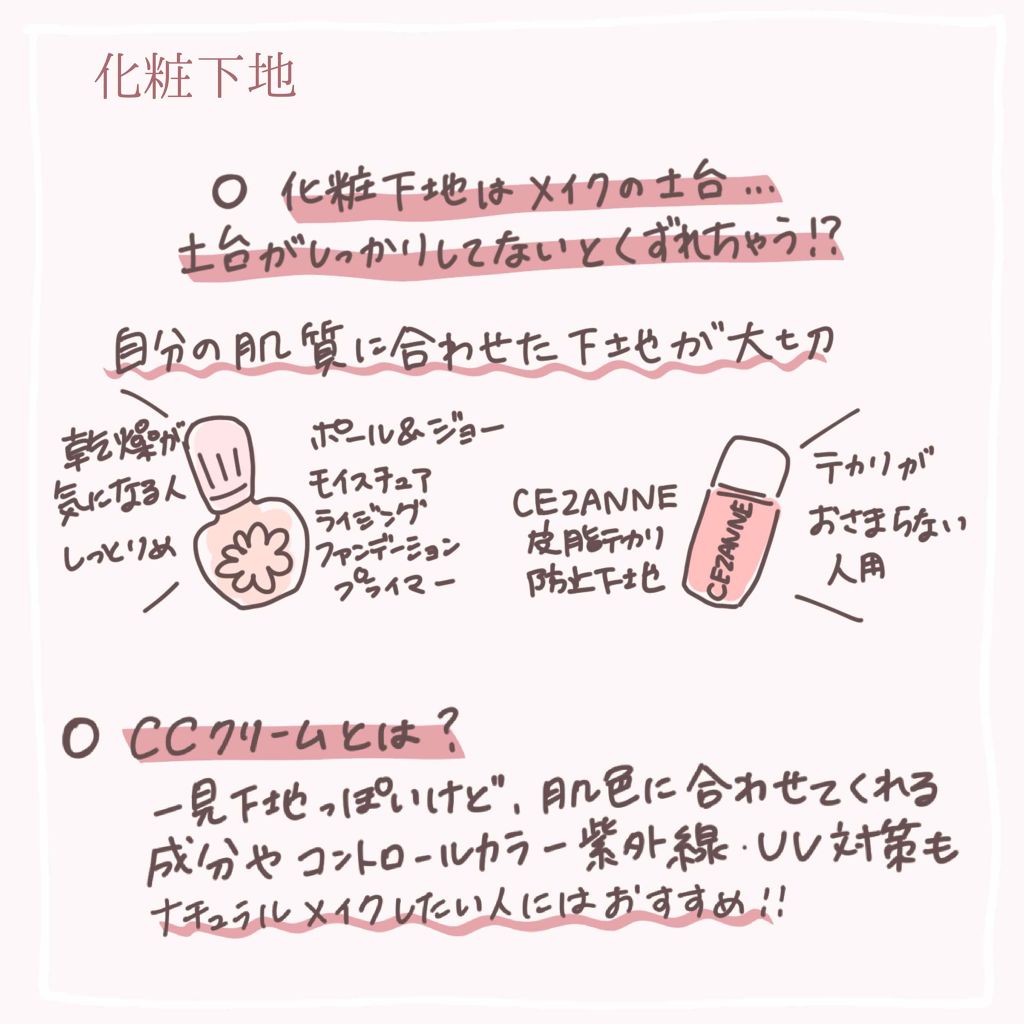 化粧下地
○ 化粧下地はメイクの土台...
土台がしっかりしてないとくずれちゃう!?
自分の肌質に合わせた下地が大切
乾燥が
気になる人
しっとりめ
ポール&ジョー
モイスチュア
ライジング
ファンデーション
プライマー
CEZANNE
皮脂テカリ
防止下地
CEZANNE
テカリが
おさまらない
人用
○ CCクリームとは?
一見下地っぽいけど、肌色に合わせてくれる
成分やコントロールカラー紫外線・UV対策も
ナチュラルメイクしたい人にはおすすめ!!